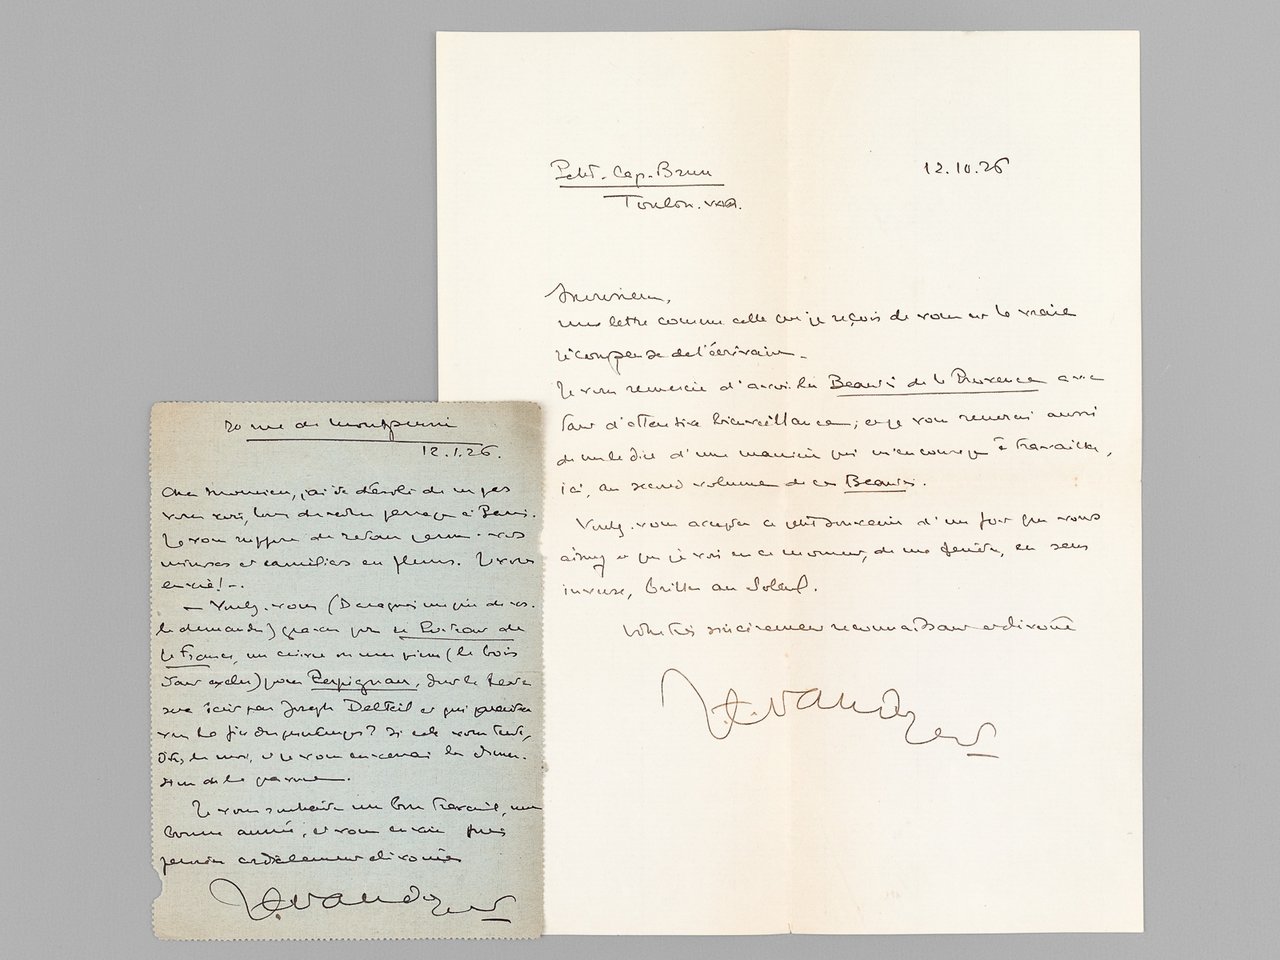 20 rue de
12.1.26.
Cher Monsieur, j'ai été désolé de ne pas
vous voir, lors de votre passage à Paris.
Je vous suppose de retour parmi vos
mimosas et camélias en fleurs. Je vous
envie! -.
— Voulez-vous (Daragnès me prie de vous
le demander) graver pour le Portrait de
la France, un cuivre ou une pierre (le bois
étant exclu) pour Perpignan, dont le texte
sera écrit par Joseph Delteil et qui paraîtra
vers la fin du printemps? Si cela vous tente,
dites-le moi, et je vous enverrai les dimen-
sions de la gravure.
Je vous souhaite un bon travail, une
bonne année, et vous envoie mes
pensées cordialement dévouées
J.L. Vaudoyer
Petit-Cap-Brun
Toulon. Var.
12.10.26
Monsieur,
une lettre comme celle que je reçois de vous est la vraie
récompense de l'écrivain -
Je vous remercie d'avoir lu Beautés de la Provence avec
tant d'attentive bienveillance; et je vous remercie aussi
de me le dire d'une manière qui m'encourage à travailler,
ici, au second volume de ces Beautés.
Voulez-vous accepter ce petit souvenir d'un fort que vous
aimez et que je vois en ce moment, de ma fenêtre, en sens
inverse, briller au Soleil.
Votre très sincèrement reconnaissant et dévoué
J.L. Vaudoyer